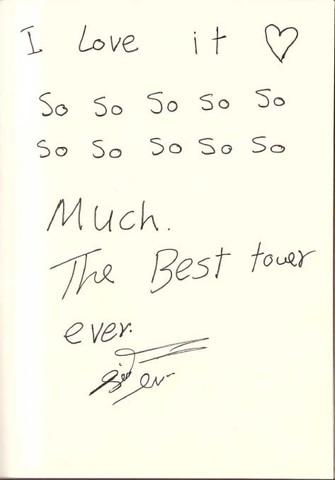 I Love it ♡
So So So So So
So So So So So
Much.
The Best tower
ever.